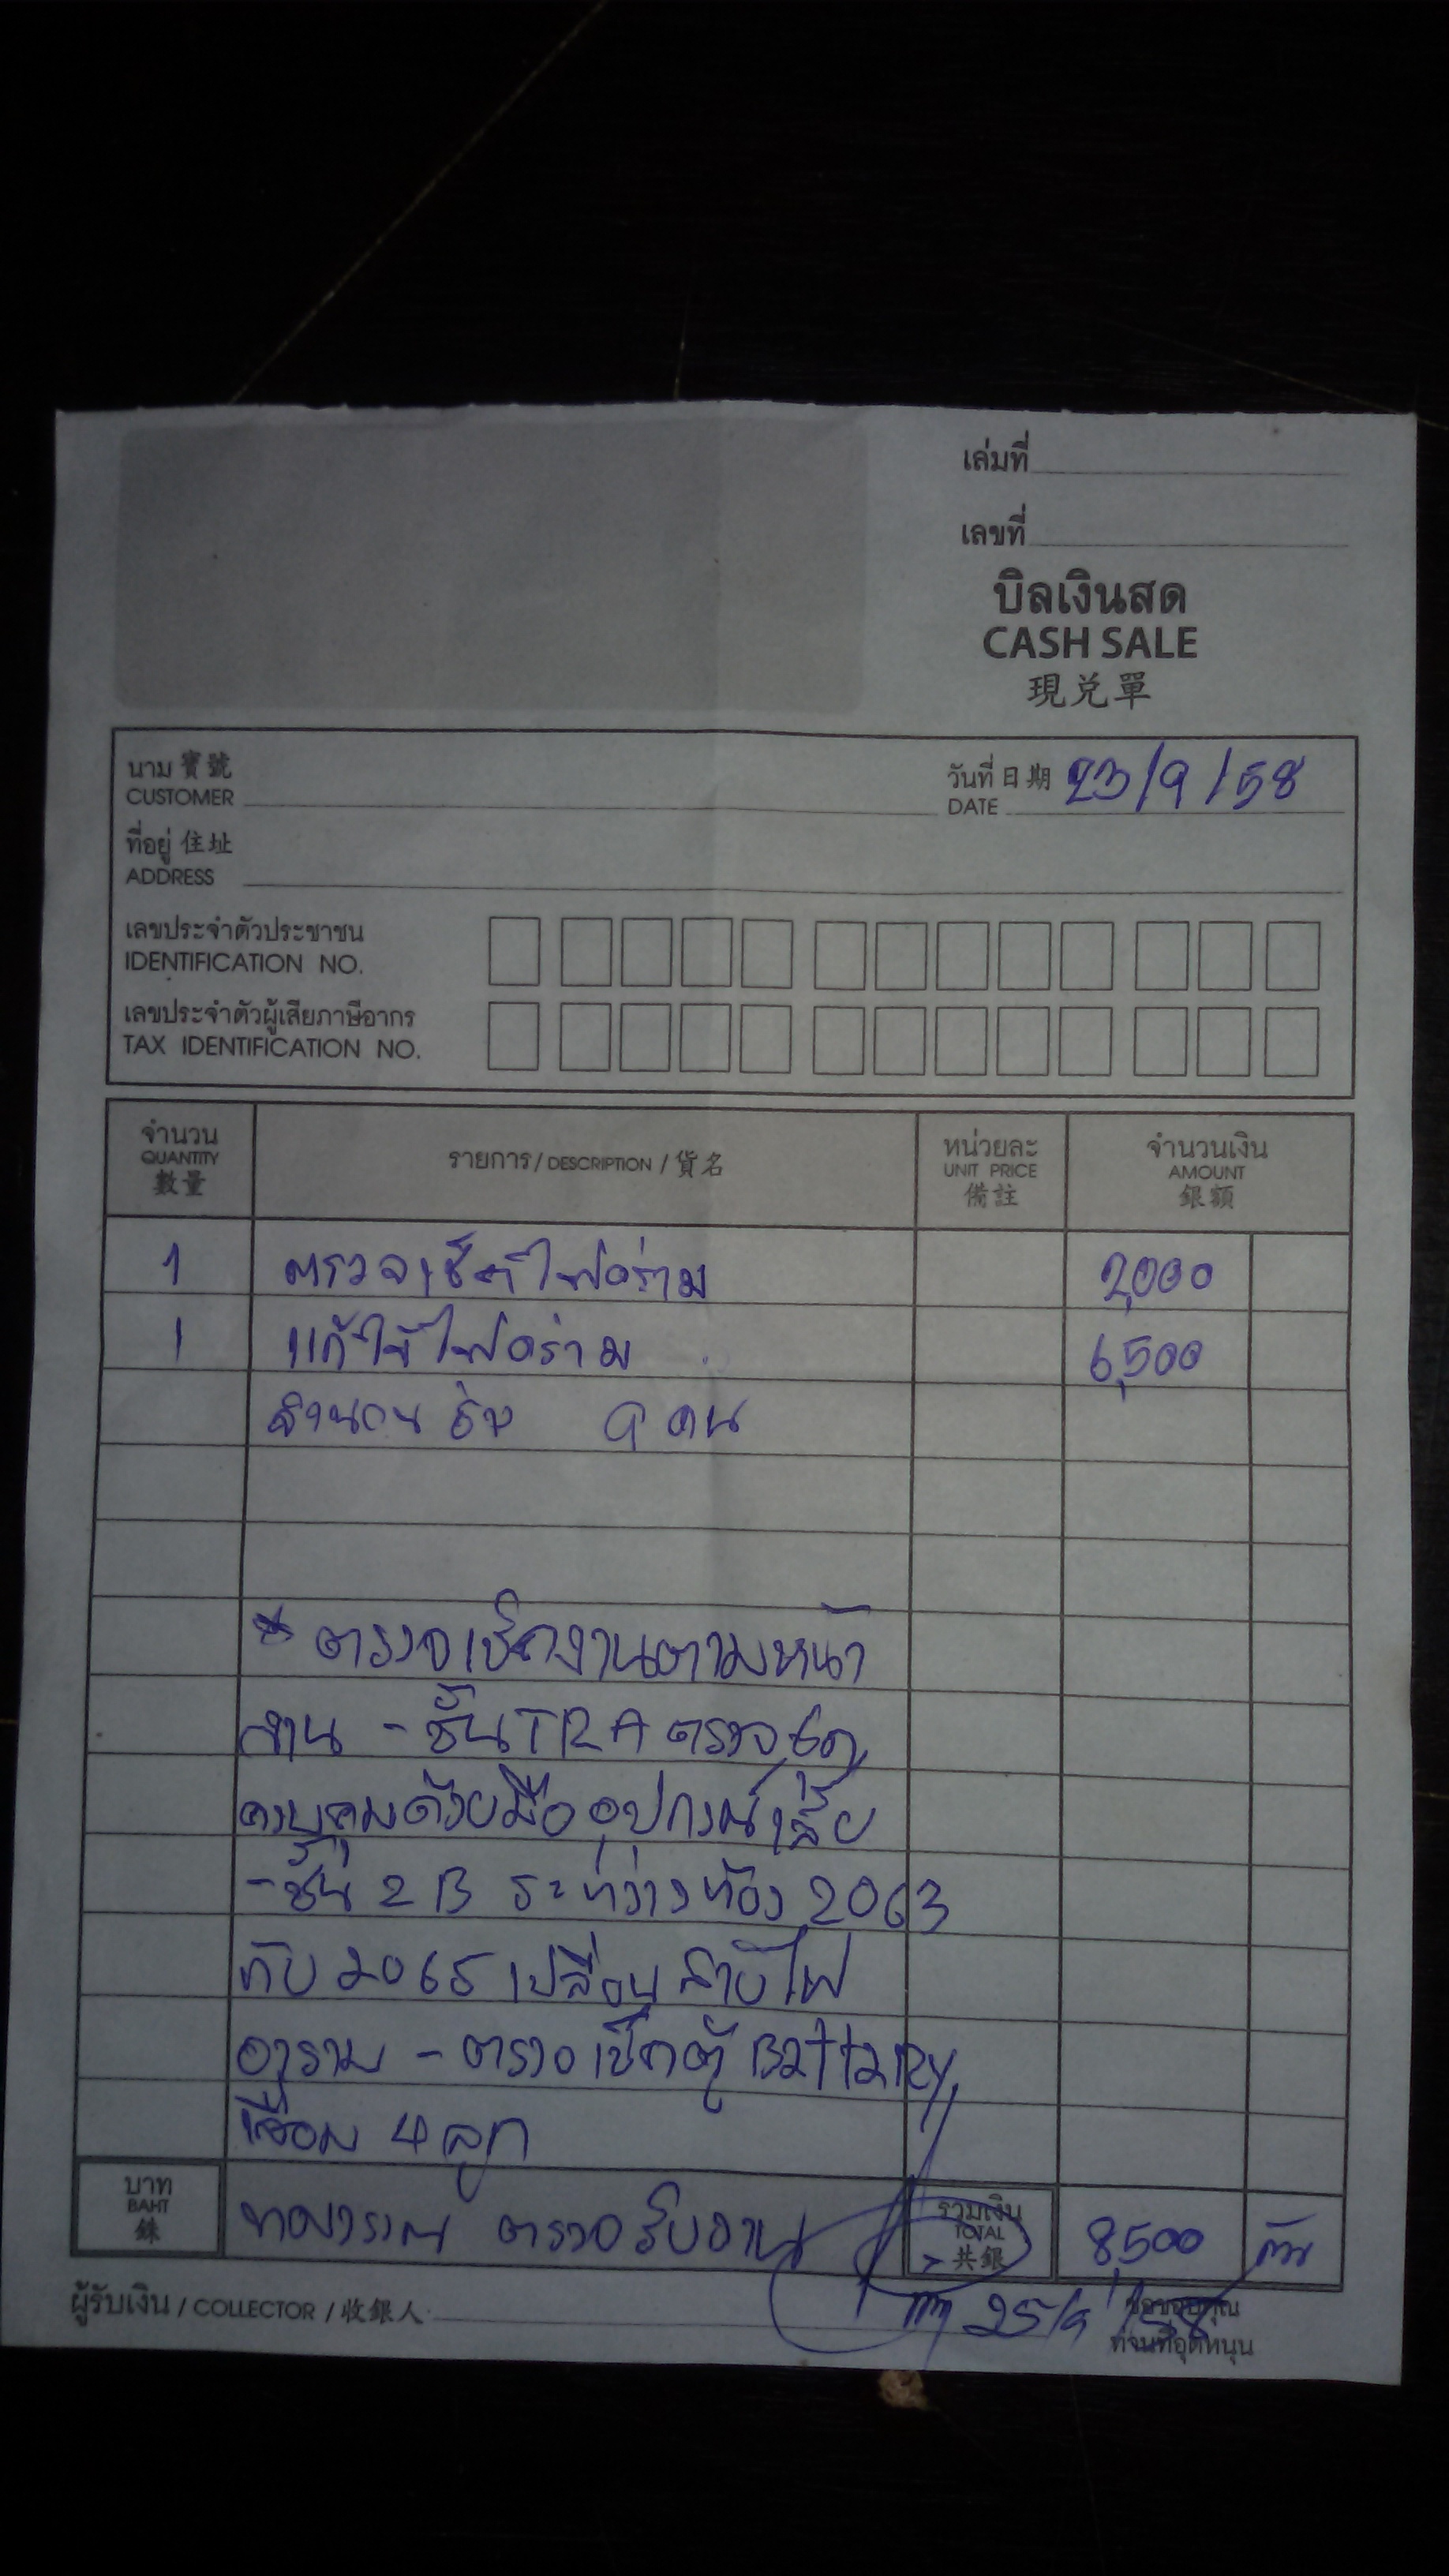 เล่มที่
เลขที่
บิลเงินสด
CASH SALE
現兌單
นาม 寶號
CUSTOMER
วันที่ 日期 23/9/58
DATE
ที่อยู่ 住址
ADDRESS
เลขประจำตัวประชาชน
IDENTIFICATION NO.
เลขประจำตัวผู้เสียภาษีอากร
TAX IDENTIFICATION NO.
จำนวน
QUANTITY
數量
รายการ / DESCRIPTION / 貨名
หน่วยละ
UNIT PRICE
備註
จำนวนเงิน
AMOUNT
銀額
1 ตรวจเช็คไฟอร่าม 2,000
1 แก้ไขไฟอร่าม 6,500
จำนวน ช่าง คน
* ตรวจเช็คงานตามหน้า
งาน - ชั้น TRA ตรวจ
ควบคุมด้วยมือ อุปกรณ์เสีย
- ชั้น 2B ระหว่างห้อง 2063
กับ 2065 เปลี่ยน สายไฟ
อาราม - ตรวจเช็คตู้ Battary
เสื่อม 4 ลูก
บาท
BAHT
銖
ตรวจรับงาน
รวมเงิน
TOTAL
共銀
8,500
ผู้รับเงิน / COLLECTOR / 收銀人
25/9/58
ขอขอบคุณ
ท่านที่อุดหนุน